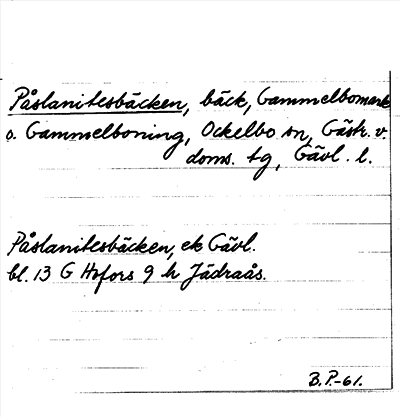 Påslanitesbäcken, bäck, Gammelbomark
o. Gammelboning, Ockelbo sn, Gästr. v.
doms. tg, Gävl. l.
Påslanitesbäcken, ek Gävl.
bl. 13 G Hofors 9 h Jädraås.
B.P.-61.